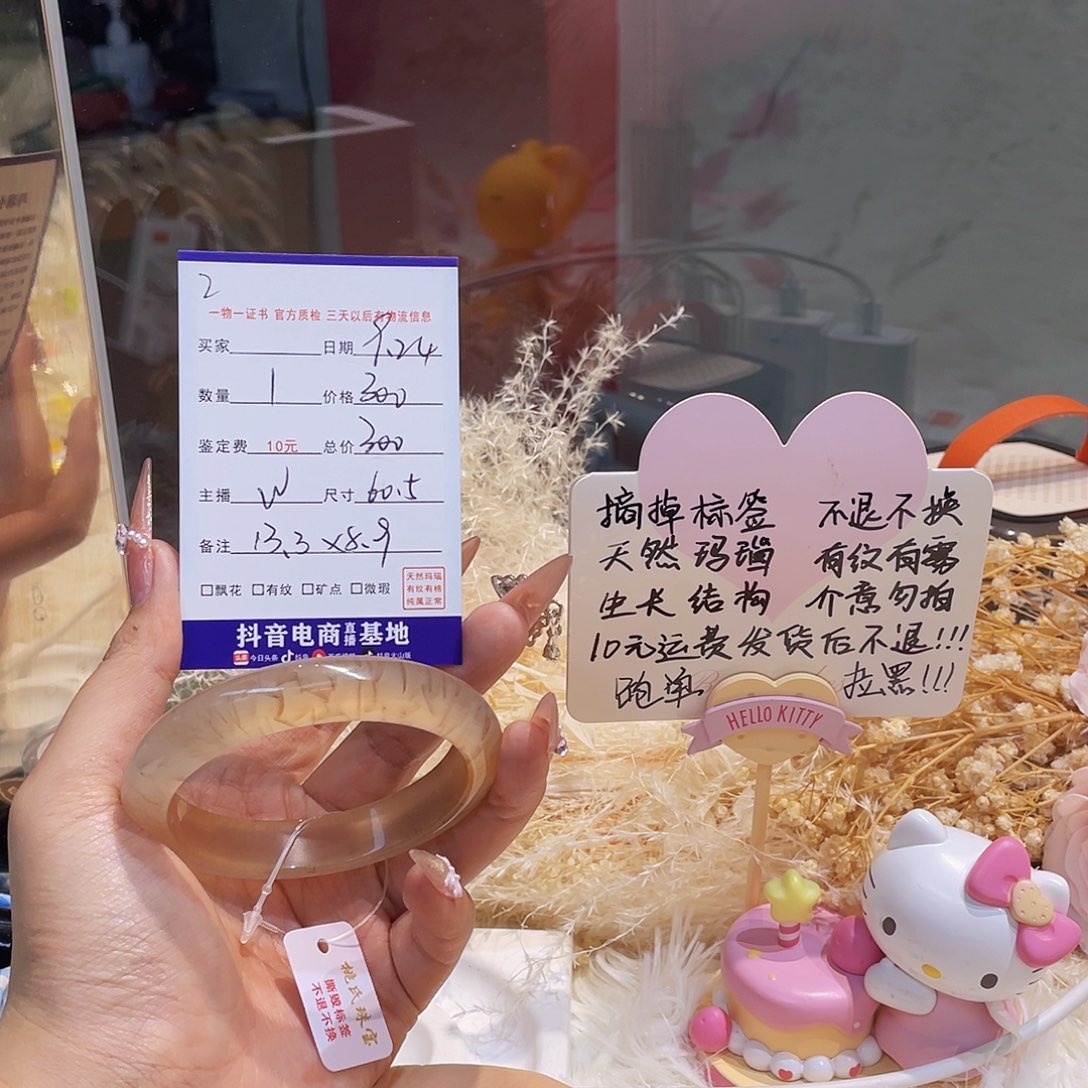 2
一物一证书 官方质检 三天以后有物流信息
买家 日期 9.24
数量 1 价格 300
鉴定费 10元 总价 300
主播 W 尺寸 60.5
备注 13.3×8.9
□飘花 □有纹 □矿点 □微瑕
天然玛瑙
有纹有棉
纯属正常
抖音电商直播基地
今日头条 抖音 火山版
摘掉标签 不退不换
天然玛瑙 有纹有雾
生长结构 介意勿拍
10元运费发货后不退!!!
跑单 拉黑!!!
HELLO KITTY
姚氏珠宝
撕毁标签
不退不换